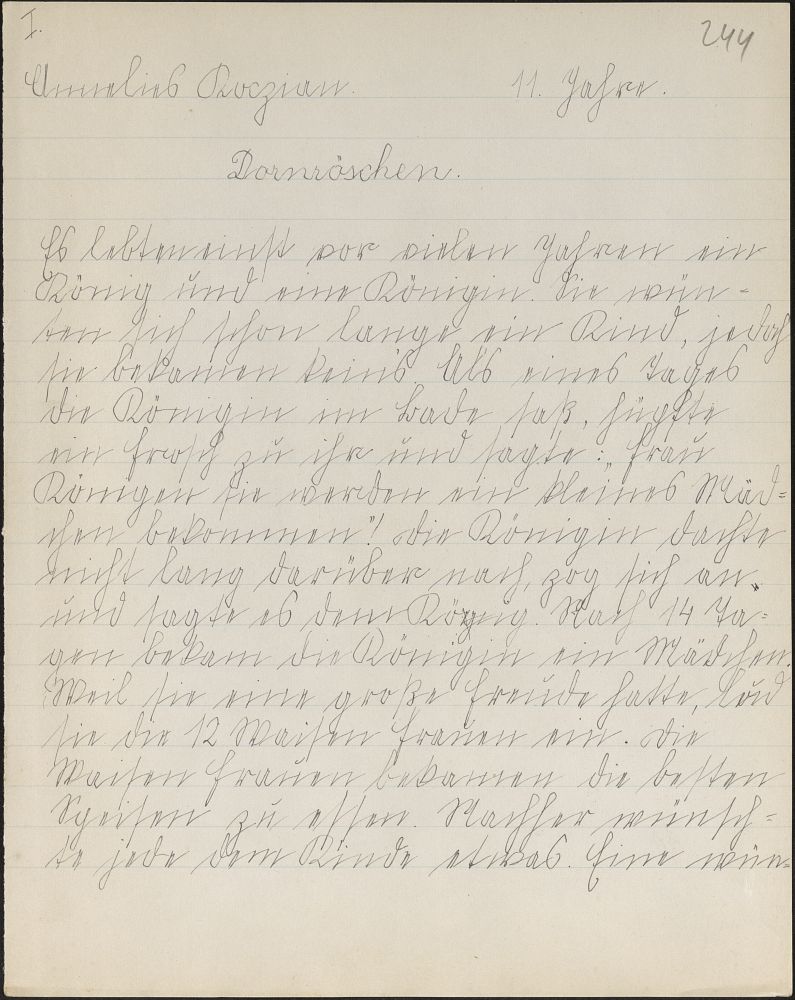 I.
244
Annelies Koczian. 11. Jahre.
Dornröschen.
Es lebten einst vor vielen Jahren ein
König und eine Königin. Sie wün-
ten sich schon lange ein Kind, jedoch
sie bekamen keins. Als eines Tages
die Königin im Bade saß, hüpfte
ein Frosch zu ihr und sagte: „Frau
Königen sie werden ein kleines Mäd-
chen bekommen"! Die Königin dachte
nicht lang darüber nach, zog sich an
und sagte es dem König. Nach 14 Ta-
gen bekam die Königin ein Mädchen.
Weil sie eine große Freude hatte, lud
sie die 12 Waisen Frauen ein. Die
Waisen Frauen bekamen die besten
Speisen zu essen. Nachher wünsch-
te jede dem Kinde etwas. Eine wün-